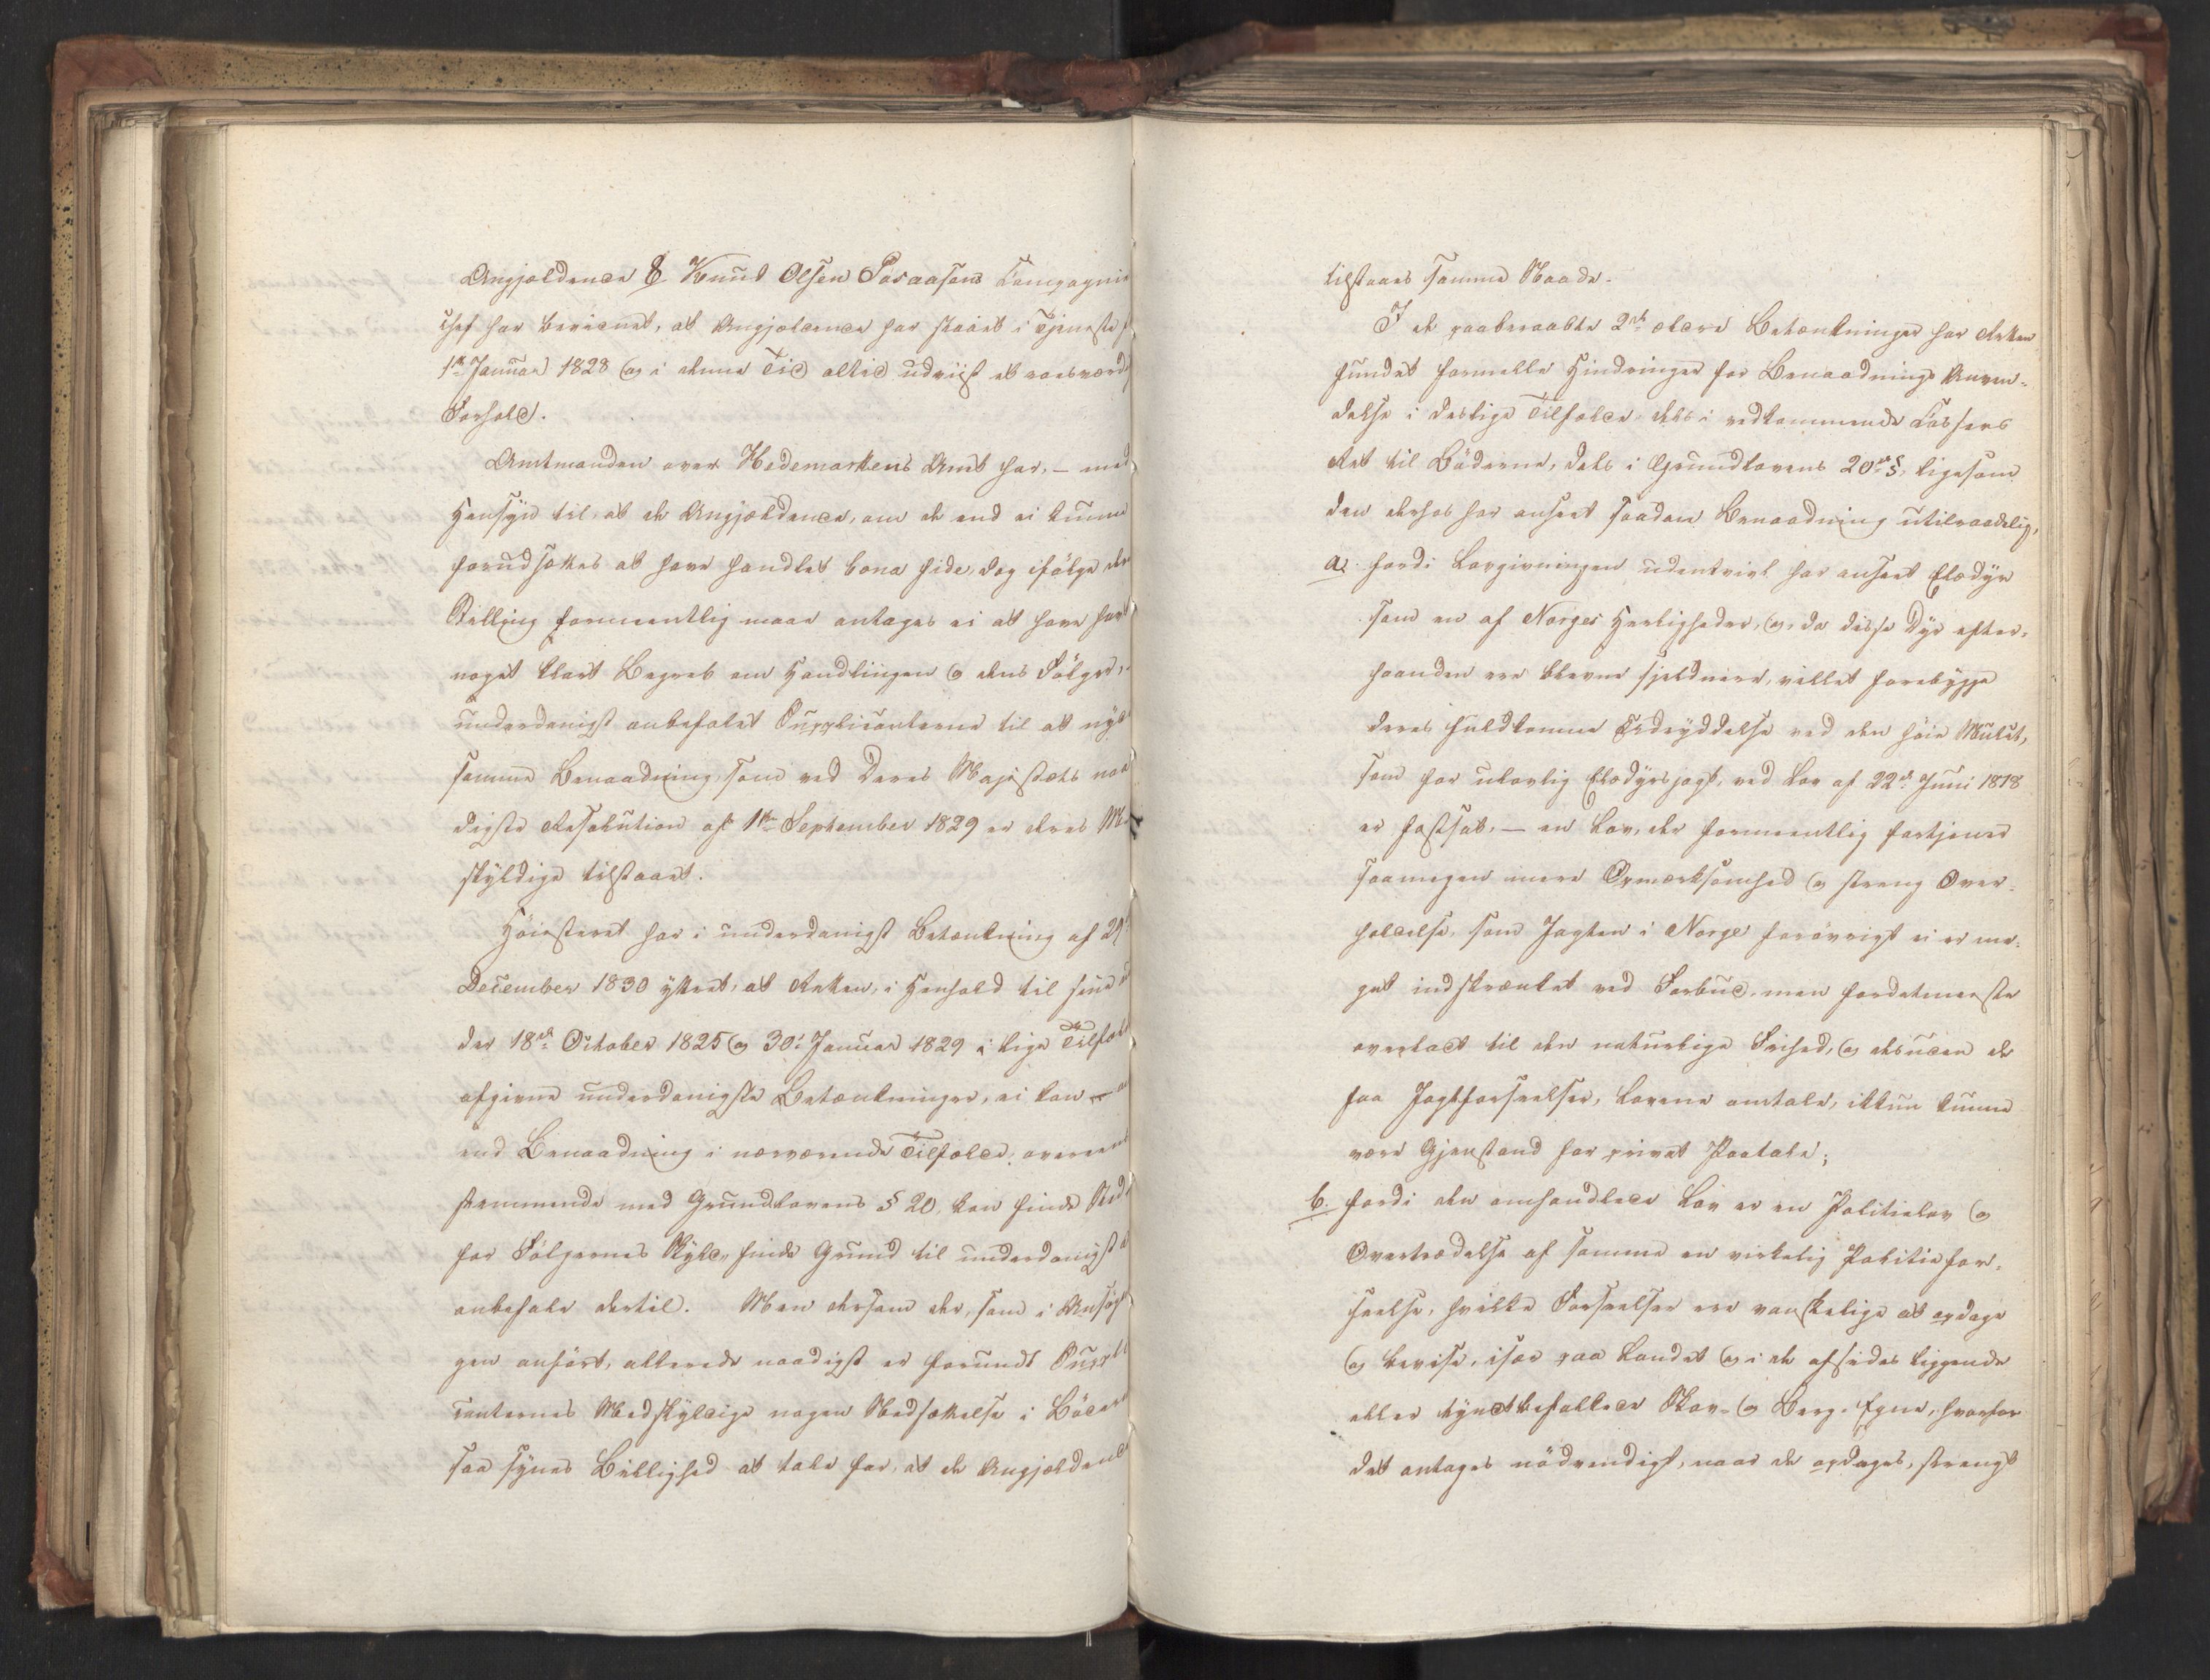 Angjældende 8 Knud Olsen Paraasens Compagnie
chef har bevidnet, at Angjældende har staaet i Tjeneste f
1ste Januar 1828 og i denne Tid altid udviist et roesværd
Forhold.
Amtmanden over Hedemarkens Amt har, – med
Hensyn til, at de Angjældende, om de end ei kunne
forudsættes at have handlet bona fide, dog ifølge der
Stilling formeentlig maae antages ei at have havt
noget klart Begreb om Handlingen og dens Følger,
underdanigst anbefalet Supplicanterne til at nyde
samme Benaadning, som ved Deres Majestæts naa
digste Resolution af 1ste September 1829 er deres Med
skyldige tilstaaet.
Høiesteret har i underdanigst Betænkning af 29
December 1830 yttret, at Retten, i Henhold til sine un
der 18de October 1825 og 30te Januar 1829 i lige Tilfælde
afgivne underdanigste Betænkninger, ei kan –
end Benaadning i nærværende Tilfælde, overeens
stemmende med Grundlovens § 20, kan finde Sted
for Følgernes Skyld, finde Grund til underdanigst a
anbefale dertil. Men dersom der, som i Ansøgnin
gen anført, allerede naadigst er forundt Suppli
canternes Medskyldige nogen Nedsættelse i Böderne
saa synes Billighed at tale for, at de Angjældende
tilstaaes samme Naade.
I de paaberaabte 2de ældre Betænkninger har Retten
fundet formelle Hindringer for Benaadnings Anven-
delse i deslige Tilfælde, dels i vedkommende Cassers
Ret til Böderne, dels i Grundlovens 20de §, ligesom
den derhos har anseet saadan Benaadning utilraadelig,
a. fordi Lovgivningen udentvivl har anseet Elsdyr
som en af Norges Herligheder, og, da disse Dyr efter-
haanden ere blevne sjeldnere, villet forebygge
deres fuldkomne Udryddelse ved den høie Mulct,
som for ulovlig Elsdyrsjagt, ved Lov af 22de Juni 1818
er fastsat, – en Lov, der formeentlig fortjener
saamegen mere Opmærksomhed og streng Over-
holdelse, som Jagten i Norge forøvrigt ei er me-
get indskrænket ved Forbud, men fordetmeeste
overladt til den naturlige Frihed, og desuden de
faa Jagtforseelser, Lovene omtale, ikkun kunne
være Gjenstand for privat Paatale;
b. fordi den omhandlede Lov er en Politielov og
Overtrædelse af samme en virkelig Politiefor-
seelse, hvilke Forseelser ere vanskelige at opdage
og bevise, især paa Landet og i de afsides liggende
eller tyndtbefolkede Skov- og Berg-Egne, hvorfor
det antages nödvendigt, naar de opdages, strengt